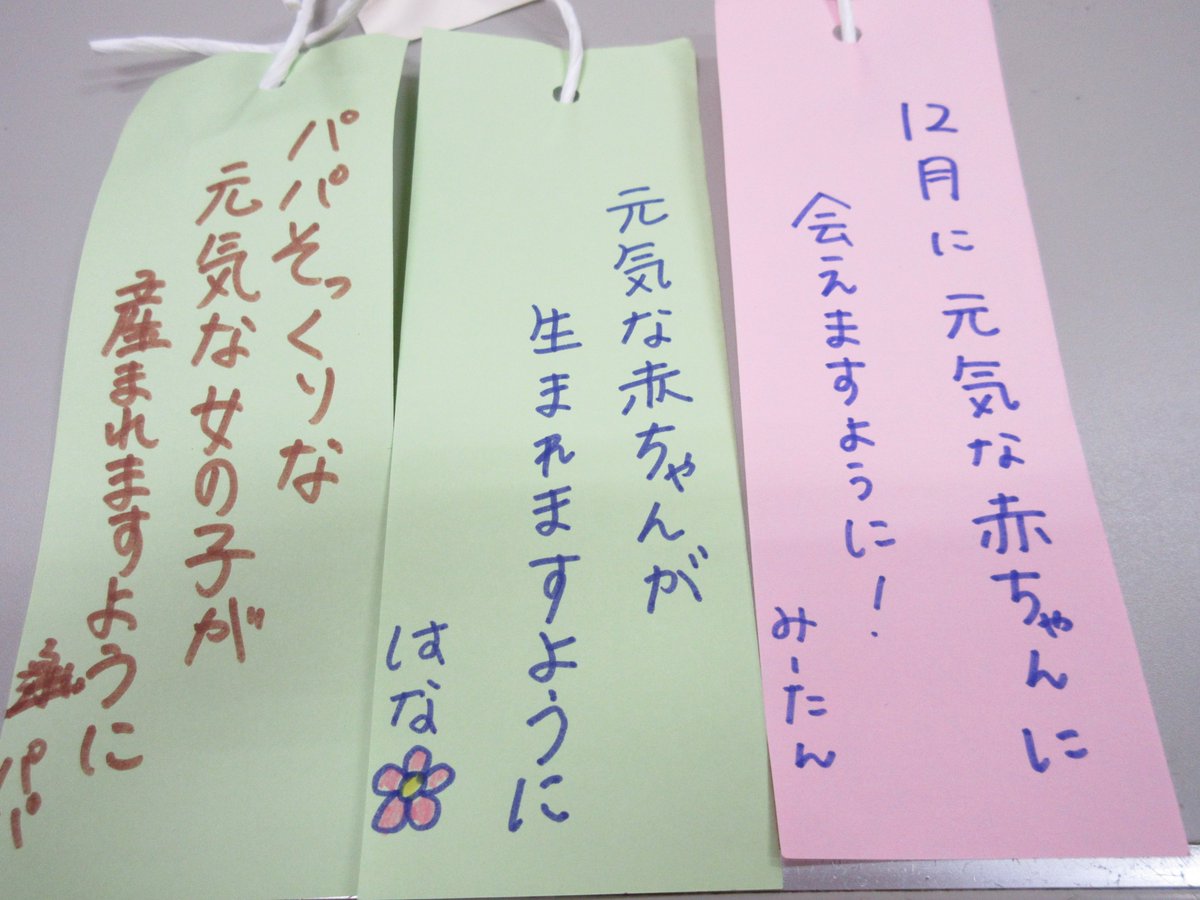 12月に元気な赤ちゃんに
会えますように!
みーたん
元気な赤ちゃんが
生まれますように
はな
パパそっくりな
元気な女の子が
産まれますように
パパ